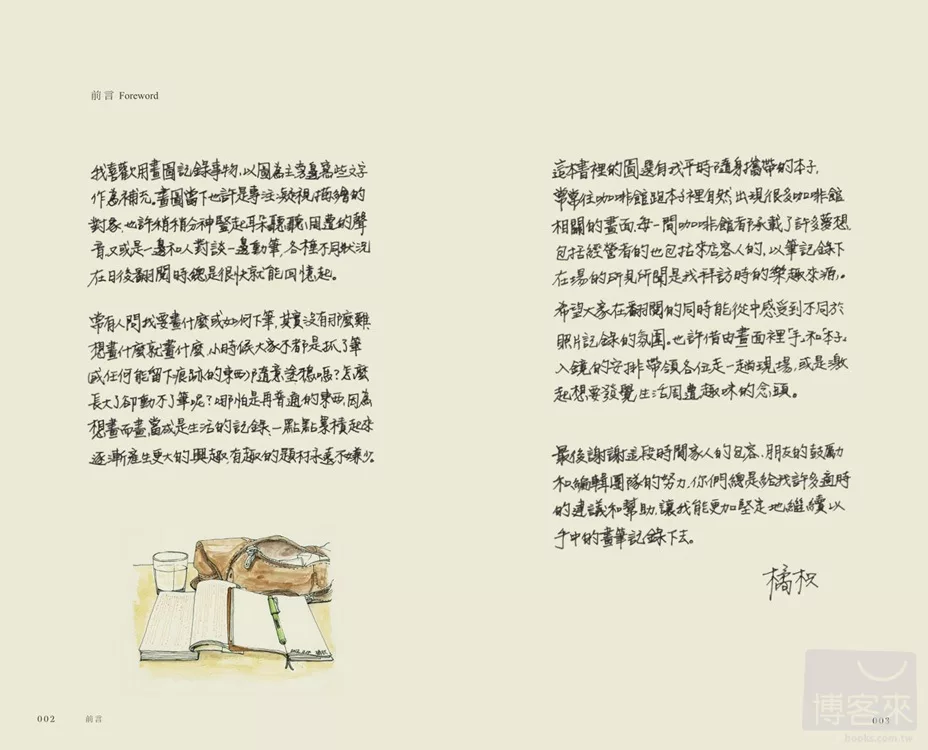 前言 Foreword
我喜歡用畫圖記錄事物,以圖為主旁邊寫些文字
作為補充。畫圖當下也許是專注凝視描繪的
對象,也許稍稍分神豎起耳朵聽聽周遭的聲
音,又或是一邊和人對談一邊動筆,各種不同狀況
在日後翻閱時總是很快就能回憶起。
常有人問我要畫什麼或如何下筆,其實沒有那麼難
想畫什麼就畫什麼,小時候大家不都是抓了筆
或任何能留下痕跡的東西隨意塗鴉嗎?怎麼
長大了卻動不了筆呢?哪怕是再普通的東西,因為
想畫而畫當成是生活的記錄、一點點累積起來
逐漸產生更大的興趣,有趣的題材永遠不嫌少。
這本書裡的圖選自我平時隨身攜帶的本子,
常常往咖啡館跑本子裡自然出現很多咖啡館
相關的畫面,每一間咖啡館都承載了許多夢想
包括經營者的也包括來店客人的,以筆記錄下
在場的所見所聞是我拜訪時的樂趣來源。
希望大家在翻閱的同時能從中感受到不同於
照片記錄的氛圍。也許借由畫面裡「手」和「本子」
入鏡的安排帶領各位走一趟現場,或是激
起想要發覺生活周遭趣味的念頭。
最後謝謝這段時間家人的包容、朋友的鼓勵
和編輯團隊的努力,你們總是給我許多適時
的建議和幫助,讓我能更加堅定地繼續以
手中的畫筆記錄下去。
橘枳
002 前言
003
博客來
books.com.tw